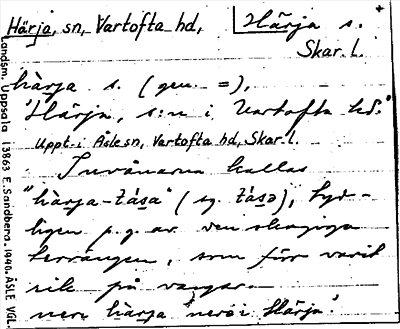 Härja, sn, Vartofta hd,
Härja s.
Skar. l.
hærja s. (gen. =),
'Härja, s:n i Vartofta hd.'
Uppt. i Åsle sn, Vartofta hd, Skar. l.
Invånarna kallas
"hærja-tåsa" (sg. tåsə), tyd-
ligen p.g.av. den skogiga
terrängen, som förr varit
rik på vargar.
nere i Härja'.
Landsm. Uppsala 13863 E. Sandberg. 1940. ÅSLE VGL.